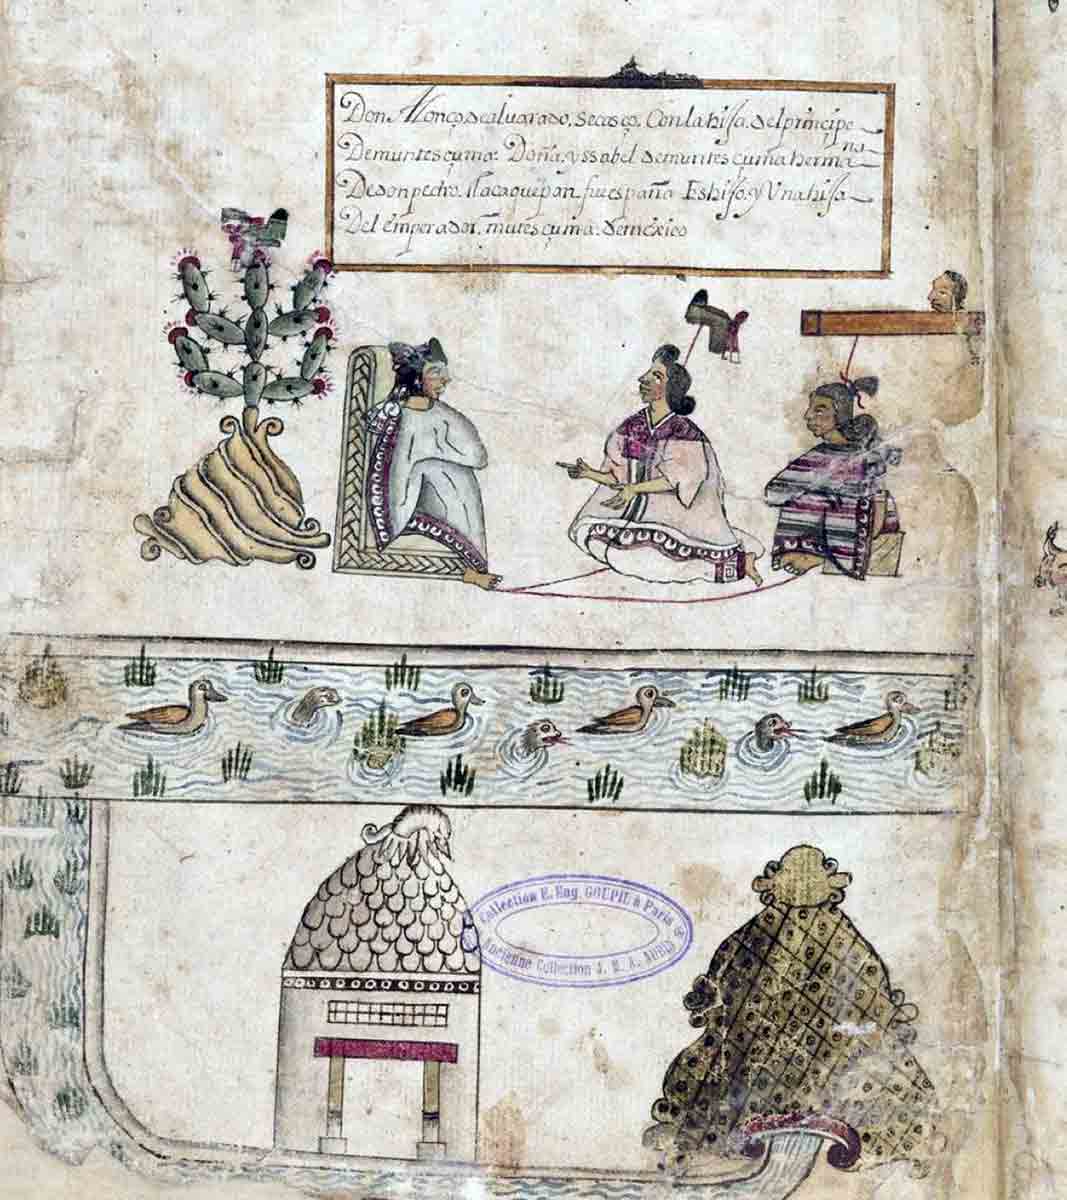 Don Alonço, de aluarado. se casó, Con la hija, del principe
Demuntesçuma: Doña, yssabel demuntesçuma herma-
na
Dedon pedro, tlacaquepan fue españa Es hijo, y Vna hija
Del emperador, mutesçuma. de mexico
Collection E. Eug. GOUPIL à Paris
Ancienne Collection J. M. A. AUBIN